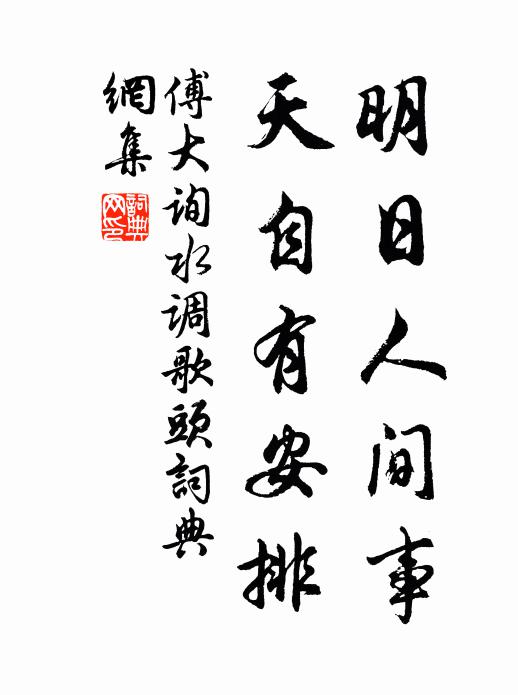 明日人间事
天自有安排
傅大询水调歌头詞典
網集
詞典
网印